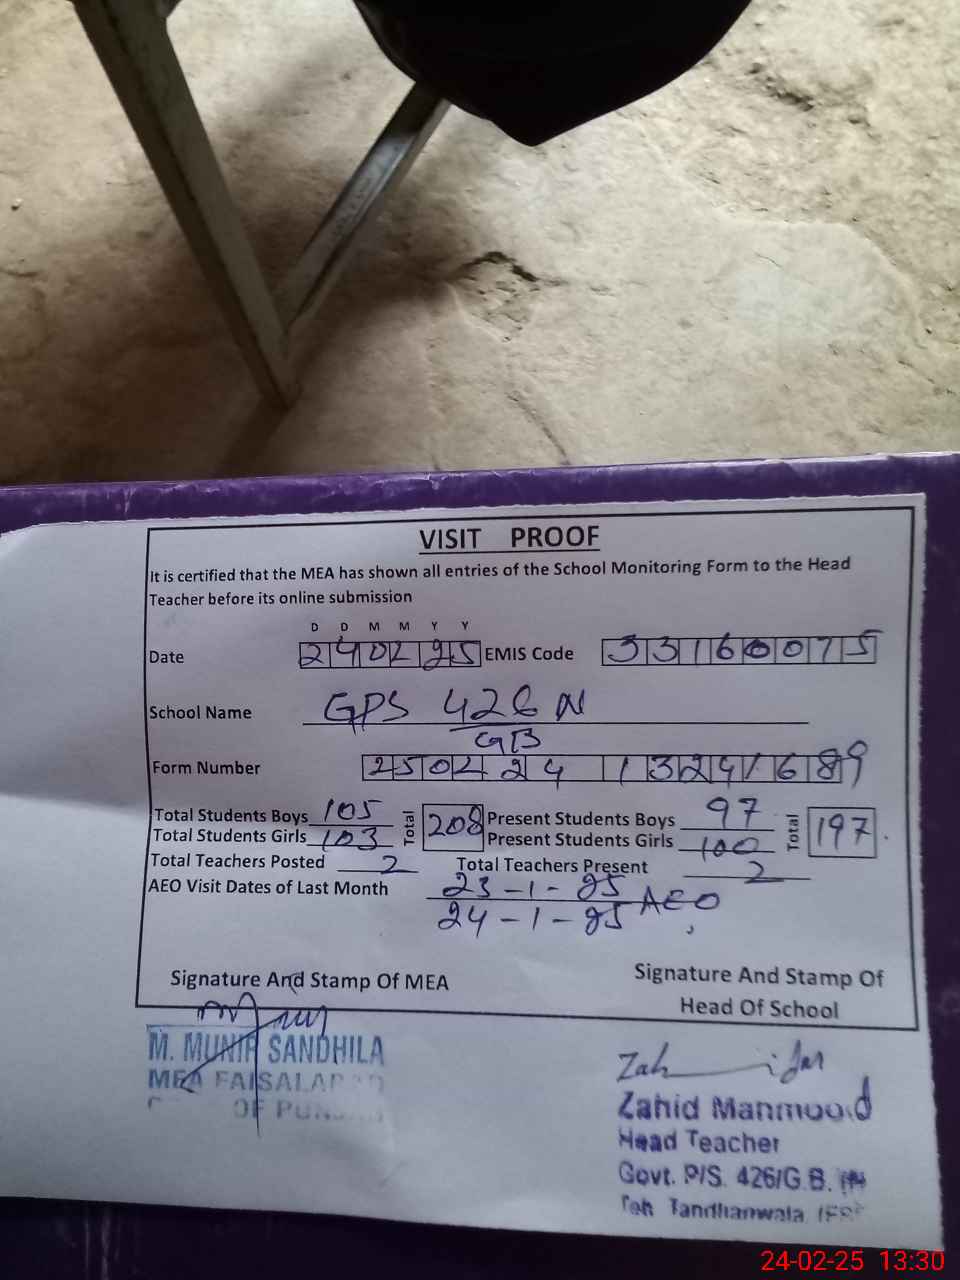 VISIT PROOF
It is certified that the MEA has shown all entries of the School Monitoring Form to the Head
Teacher before its online submission
D D M M Y Y
Date 240225 EMIS Code 33160075
School Name GPS 426 N
GB
Form Number 250224 13241689
Total Students Boys 105 Total 208 Present Students Boys 97 Total 197
Total Students Girls 103 Present Students Girls 100
Total Teachers Posted 2 Total Teachers Present 2
AEO Visit Dates of Last Month 23-1-25
24-1-25 AEO
Signature And Stamp Of MEA Signature And Stamp Of
Head Of School
M. MUNIR SANDHILA
MEA FAISALABAD
OF PUNJAB
Zahid Manmood
Head Teacher
Govt. P/S. 426/G.B.
Teh Tandlianwala
24-02-25 13:30